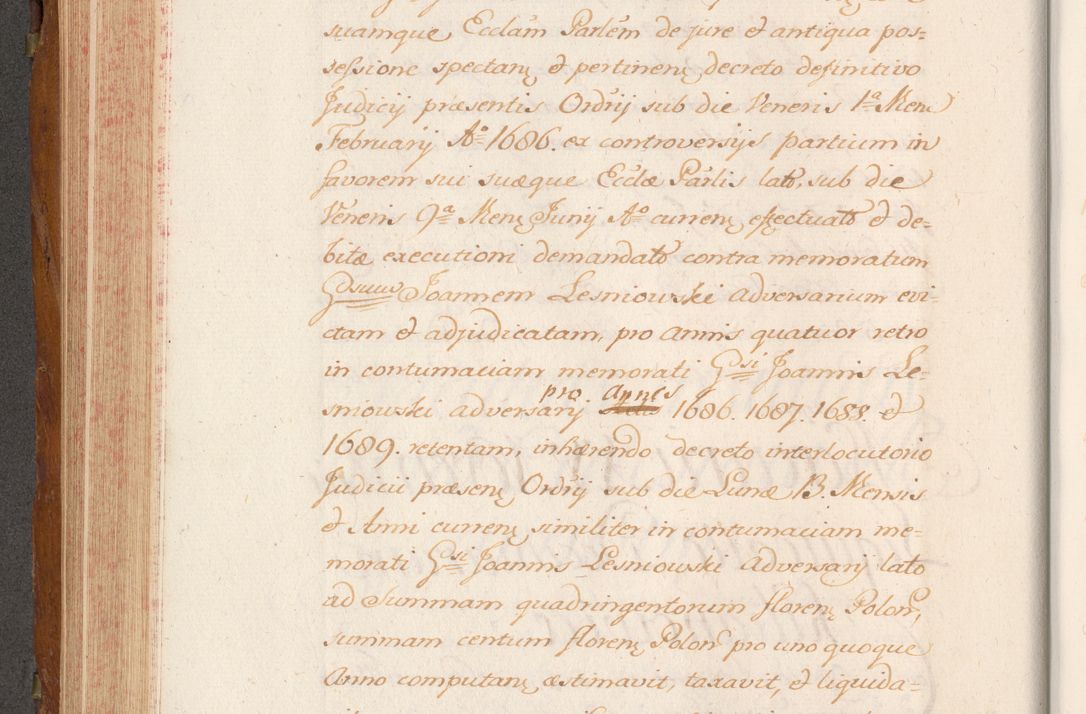 suamque Ecclam Parlem de jure et antiqua pos=
sessione spectanȩ et pertinenȩ decreto definitivo
Judicij præsentis Ordrij sub die Veneris 1ª Menȩ
Februarij Aº 1686. ex controversijs partium in
favorem sui suæque Ecclæ Parlis lato, sub die
Veneris 9ª Menȩ Junij Aº currenȩ efectuato et de-
bitæ executioni demandato contra memoratum
Gdsum Joannem Lesniowski adversarium evi-
ctam et adjudicatam, pro annis quatuor retro
in contumaciam memorati Gdsi Joannis Le-
sniowski adversarij pro annis 1686. 1687. 1688. et
1689. retentam, inhærendo decreto interlocutorio
Judicii præsenȩ Ordrij sub die Lunæ 13. Mensis
et Anni currenȩ similiter in contumaciam me=
morati Gdsi Joannis Lesniowski adversarij lato
ad summam quadringentorum florenȩ Polon,
summam centum florenȩ Polon pro uno quoque
Anno computanȩ æstimavit, taxavit, et liquida=